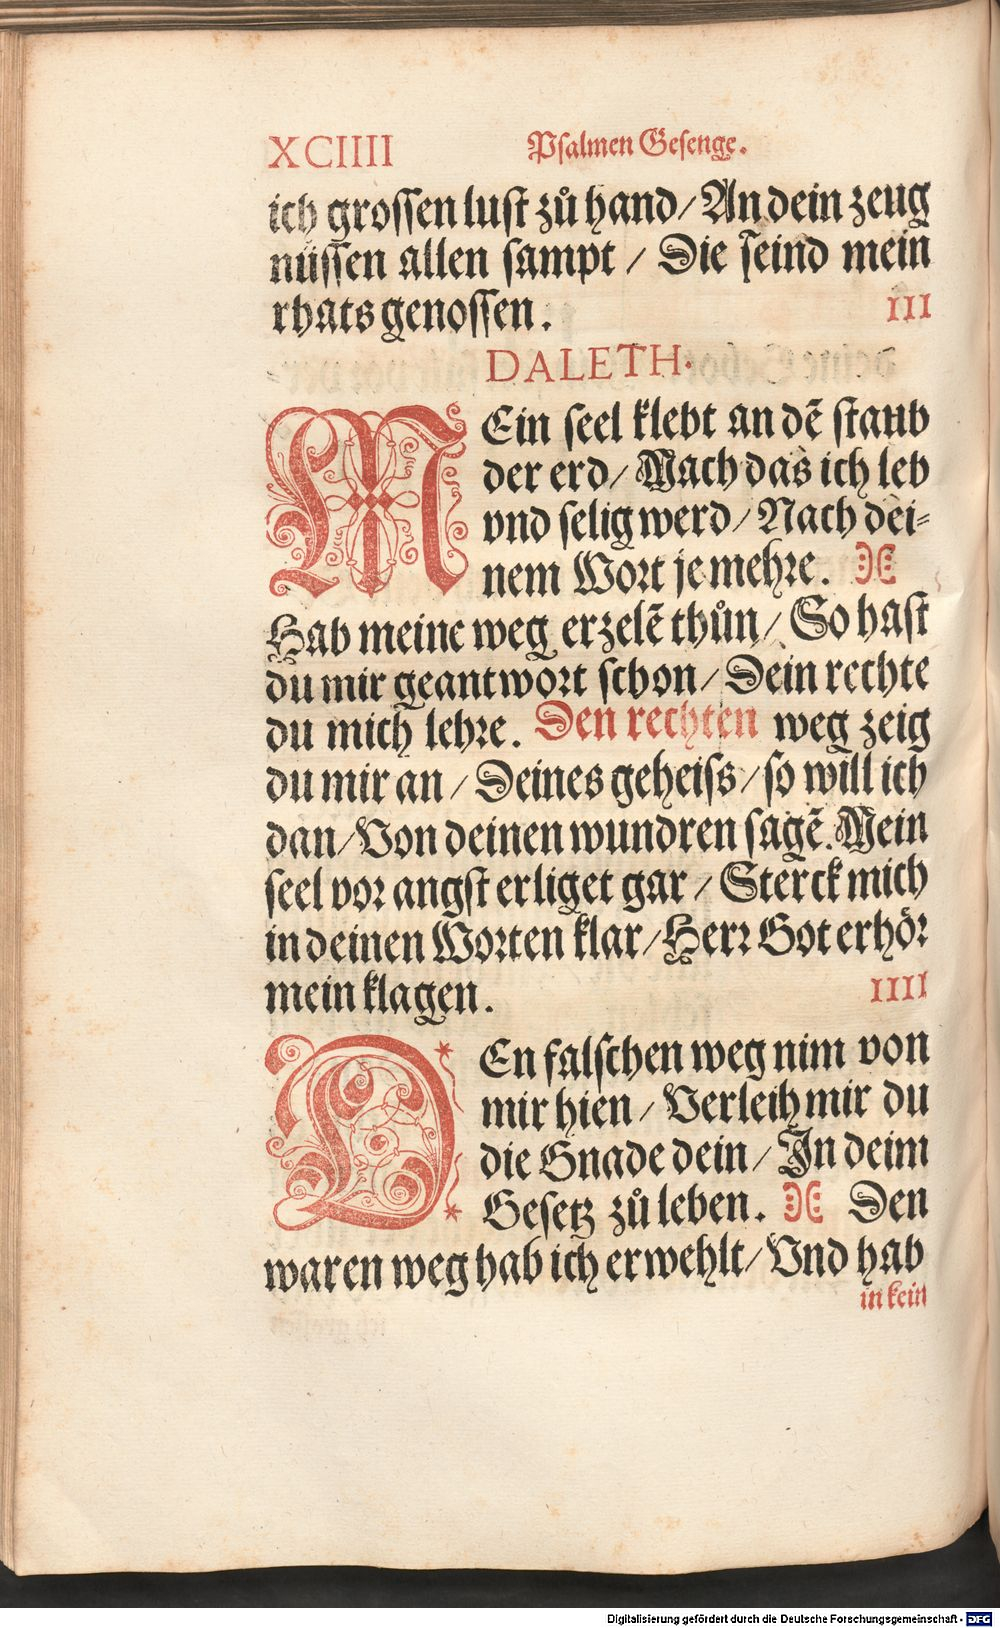 XCIIII Psalmen Gesenge.
ich grossen lust zů hand/ An dein zeug
nüssen allen sampt / Die seind mein
rhats genossen. III
DALETH.
MEin seel klebt an dẽ staub
der erd/ Mach das ich leb
vnd selig werd/ Nach dei⸗
nem Wort je mehre.
Hab meine weg erzelẽ thůn/ So hast
du mir geantwort schon/ Dein rechte
du mich lehre. Den rechten weg zeig
du mir an / Deines geheiss/ so will ich
dan/ Von deinen wundren sagẽ. Mein
seel vor angst erliget gar / Sterck mich
in deinen Worten klar/ Herr Got erhör
mein klagen. IIII
DEn falschen weg nim von
mir hien / Verleih mir du
die Gnade dein / In deim
Gesetz zů leben. Den
waren weg hab ich erwehlt/ Vnd hab
in kein
Digitalisierung gefördert durch die Deutsche Forschungsgemeinschaft - DFG